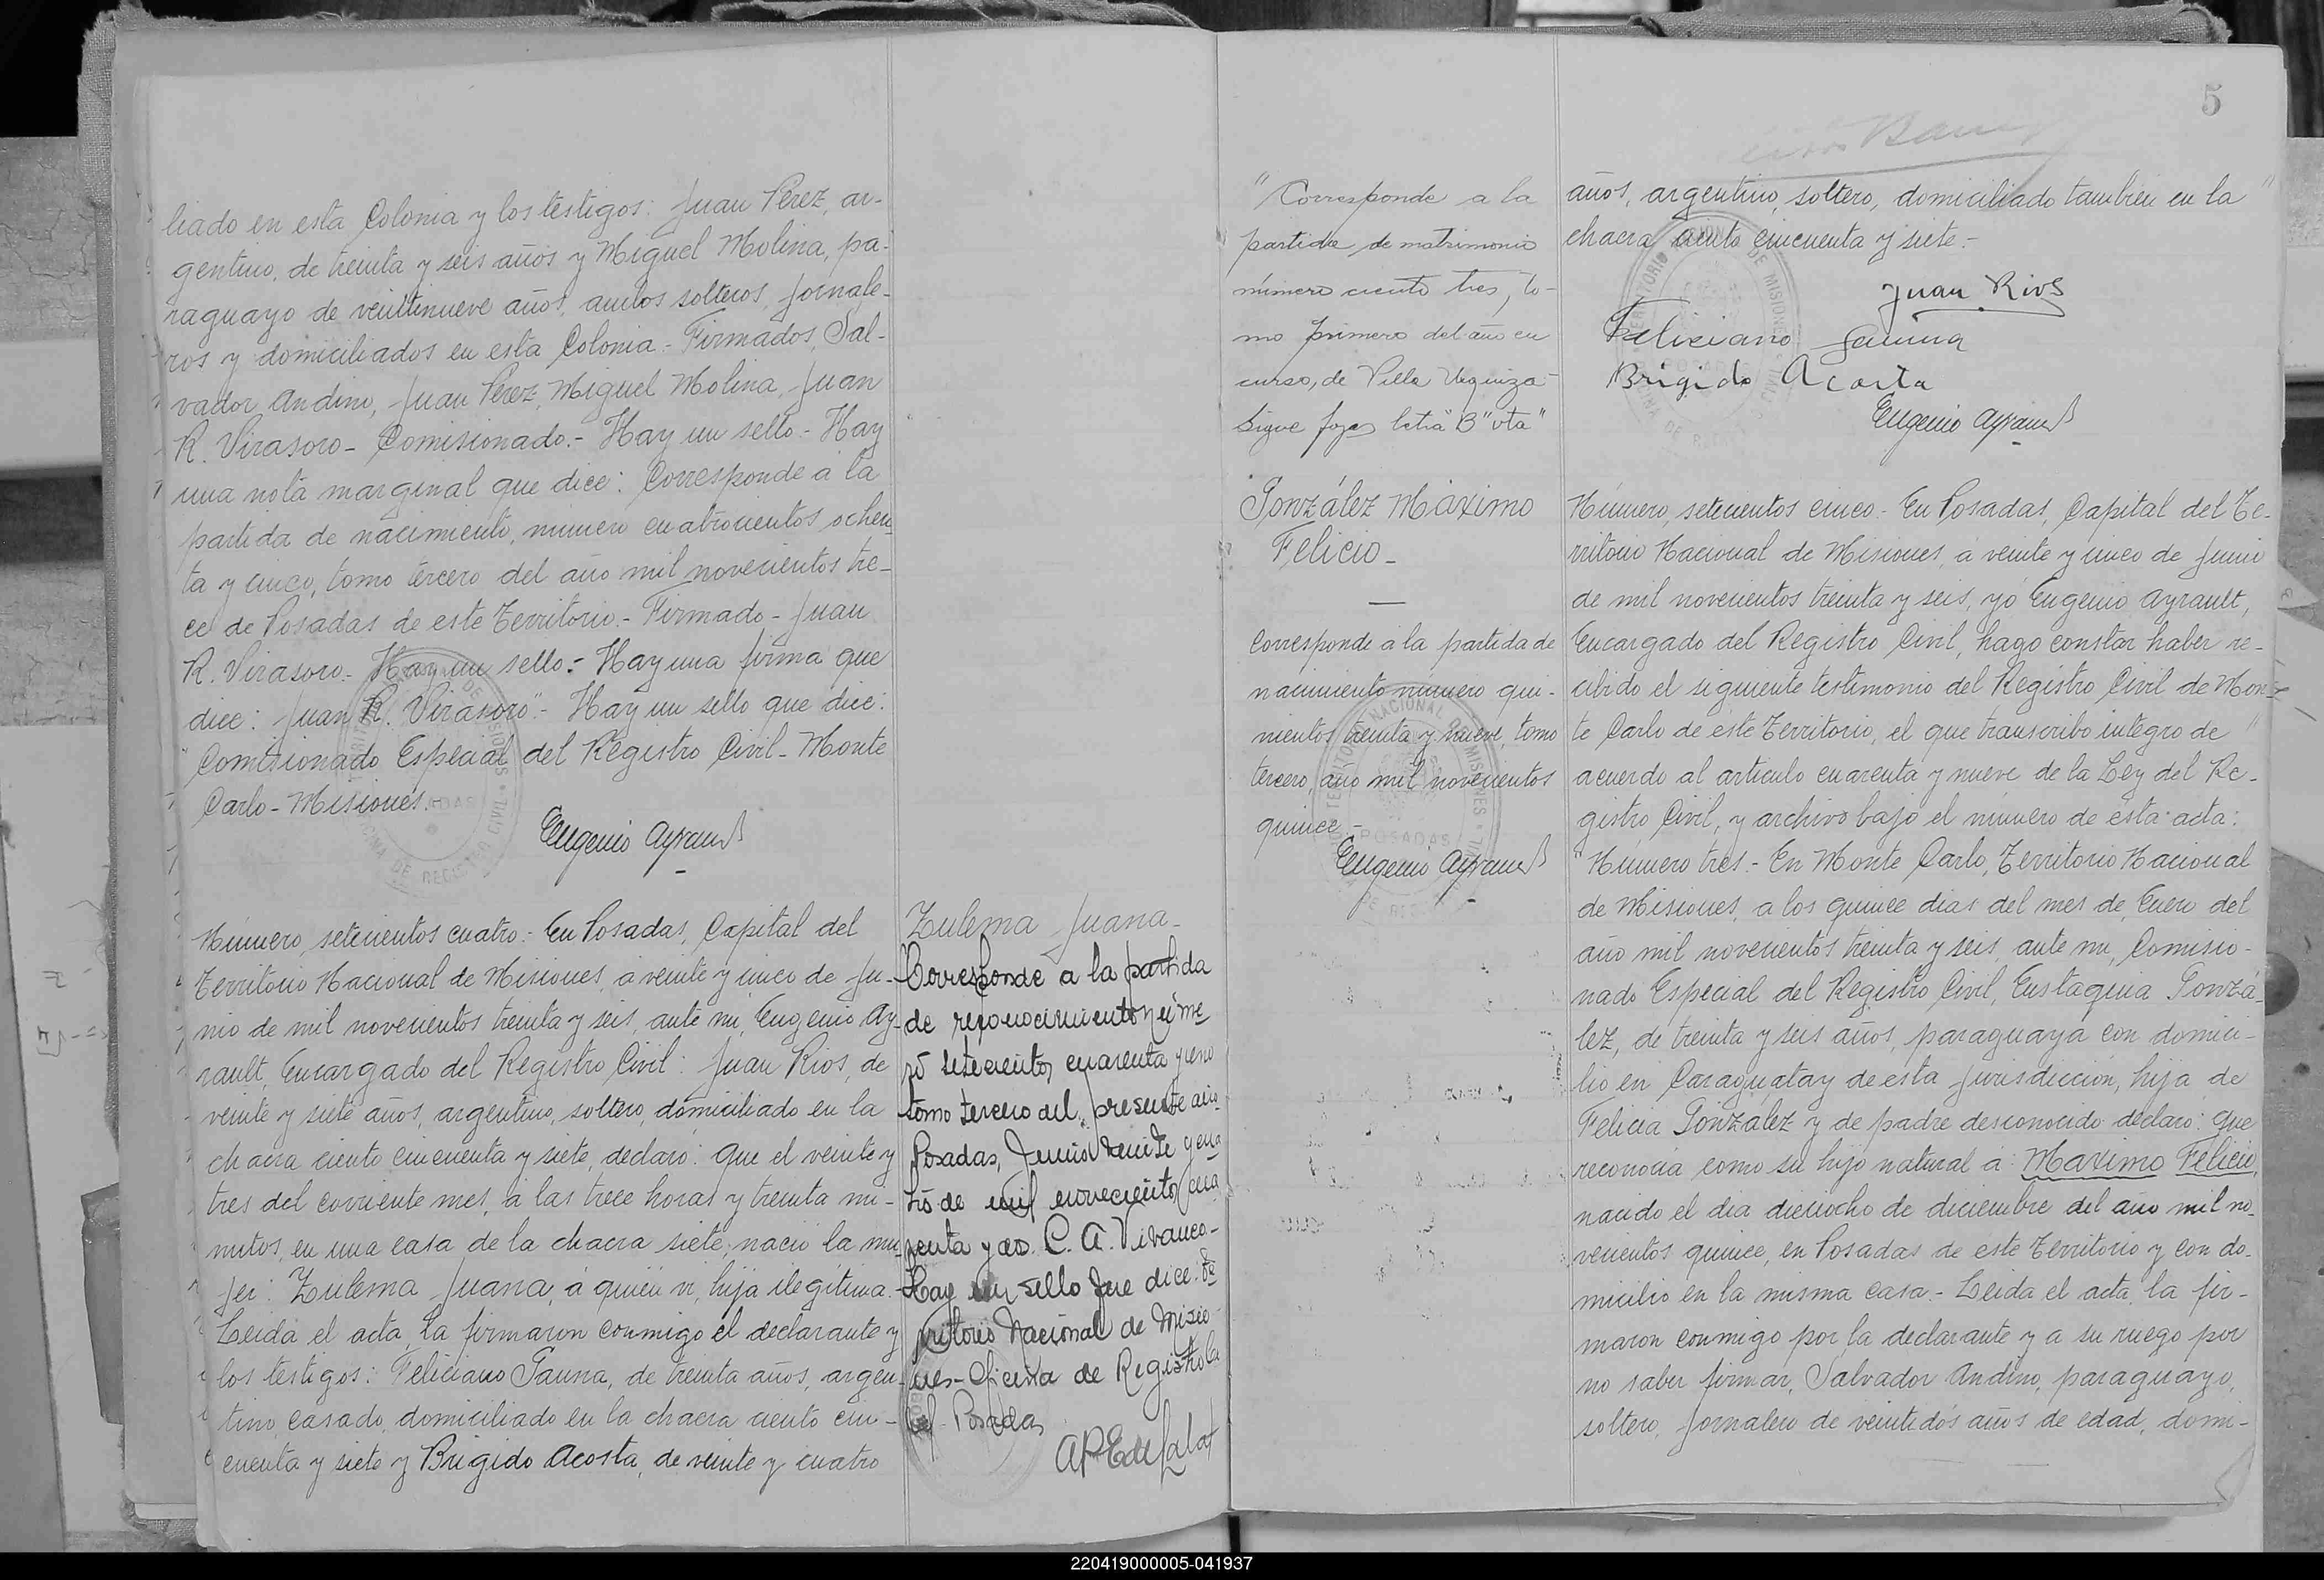 liado en esta Colonia y los testigos: Juan Pérez, ar-
gentino, de treinta y seis años y Miguel Molina, pa-
raguayo de veintinueve años, ambos solteros, jornale-
ros y domiciliados en esta Colonia.- Firmados, Sal-
vador Andino, Juan Pérez, Miguel Molina, Juan
R. Virasoro - Comisionado.- Hay un sello.- Hay
una nota marginal que dice: Corresponde a la
partida de nacimiento, número cuatrocientos ochen
ta y cinco, tomo tercero del año mil novecientos tre-
ce de Posadas de este Territorio.- Firmado - Juan
R. Virasoro.- Hay un sello.- Hay una firma que
dice: Juan R. Virasoro".- Hay un sello que dice:
"Comisionado Especial del Registro Civil - Monte
Carlo - Misiones.
Eugenio Ayrault
Número, setecientos cuatro.- En Posadas, Capital del
Territorio Nacional de Misiones, a veinte y cinco de Ju-
nio de mil novecientos treinta y seis, ante mi, Eugenio Ay-
rault, Encargado del Registro Civil: Juan Rios, de
veinte y siete años, argentino, soltero, domiciliado en la
chacra ciento cincuenta y siete, declaró: Que el veinte y
tres del corriente mes, a las trece horas y treinta mi-
nutos, en una casa de la chacra siete, nació la mu-
jer: Zulema Juana, a quien vi, hija ilegítima.-
Leida el acta, la firmaron conmigo el declarante y
los testigos: Feliciano Gauna, de treinta años, argen-
tino, casado, domiciliado en la chacra ciento cin-
cuenta y siete y Brigido Acosta, de veinte y cuatro
Zulema Juana -
Corresponde a la partida
de reconocimiento núme
ro setecientos cuarenta y uno
tomo tercero del presente año
Posadas, Junio veinte y cua
tro de mil novecientos cua
renta y dos. C. A. Vivanco-
Hay un sello que dice: Te
rritorio Nacional de Misio
nes - Oficina de Registro Ci
vil - Posadas
5
"Corresponde a la
partida de matrimonio
número ciento tres, to-
mo primero del año en
curso, de Villa Urquiza -
Sigue fojas letra "B" vta"
años, argentino, soltero, domiciliado tambien en la
chacra ciento cincuenta y siete.-
Juan Rios
Feliciano Gauna
Brigido Acosta
Eugenio Ayrault
González Máximo
Felicio -
Corresponde a la partida de
nacimiento número qui-
nientos treinta y nueve, tomo
tercero, año mil novecientos
quince -
Eugenio Ayrault
Número, setecientos cinco.- En Posadas, Capital del Te-
rritorio Nacional de Misiones, a veinte y cinco de Junio
de mil novecientos treinta y seis, yo Eugenio Ayrault,
Encargado del Registro Civil, hago constar haber re-
cibido el siguiente testimonio del Registro Civil de Mon-
te Carlo de este Territorio, el que transcribo integro de
acuerdo al artículo cuarenta y nueve de la Ley del Re-
gistro Civil, y archivo bajo el número de esta acta:
"Número tres.- En Monte Carlo, Territorio Nacional
de Misiones, a los quince dias del mes de Enero del
año mil novecientos treinta y seis, ante mi, Comisio-
nado Especial del Registro Civil, Eustaquia Gonzá-
lez, de treinta y seis años, paraguaya con domici-
lio en Caraguatay de esta jurisdicción, hija de
Felicia González y de padre desconocido declaró: que
reconocia como su hijo natural a: Maximo Felicio,
nacido el dia dieciocho de diciembre del año mil no-
vecientos quince, en Posadas de este Territorio y con do-
micilio en la misma casa.- Leida el acta, la fir-
maron conmigo por la declarante y a su ruego por
no saber firmar, Salvador Andino, paraguayo,
soltero, jornalero de veintidós años de edad, domi-
220419000005-041937